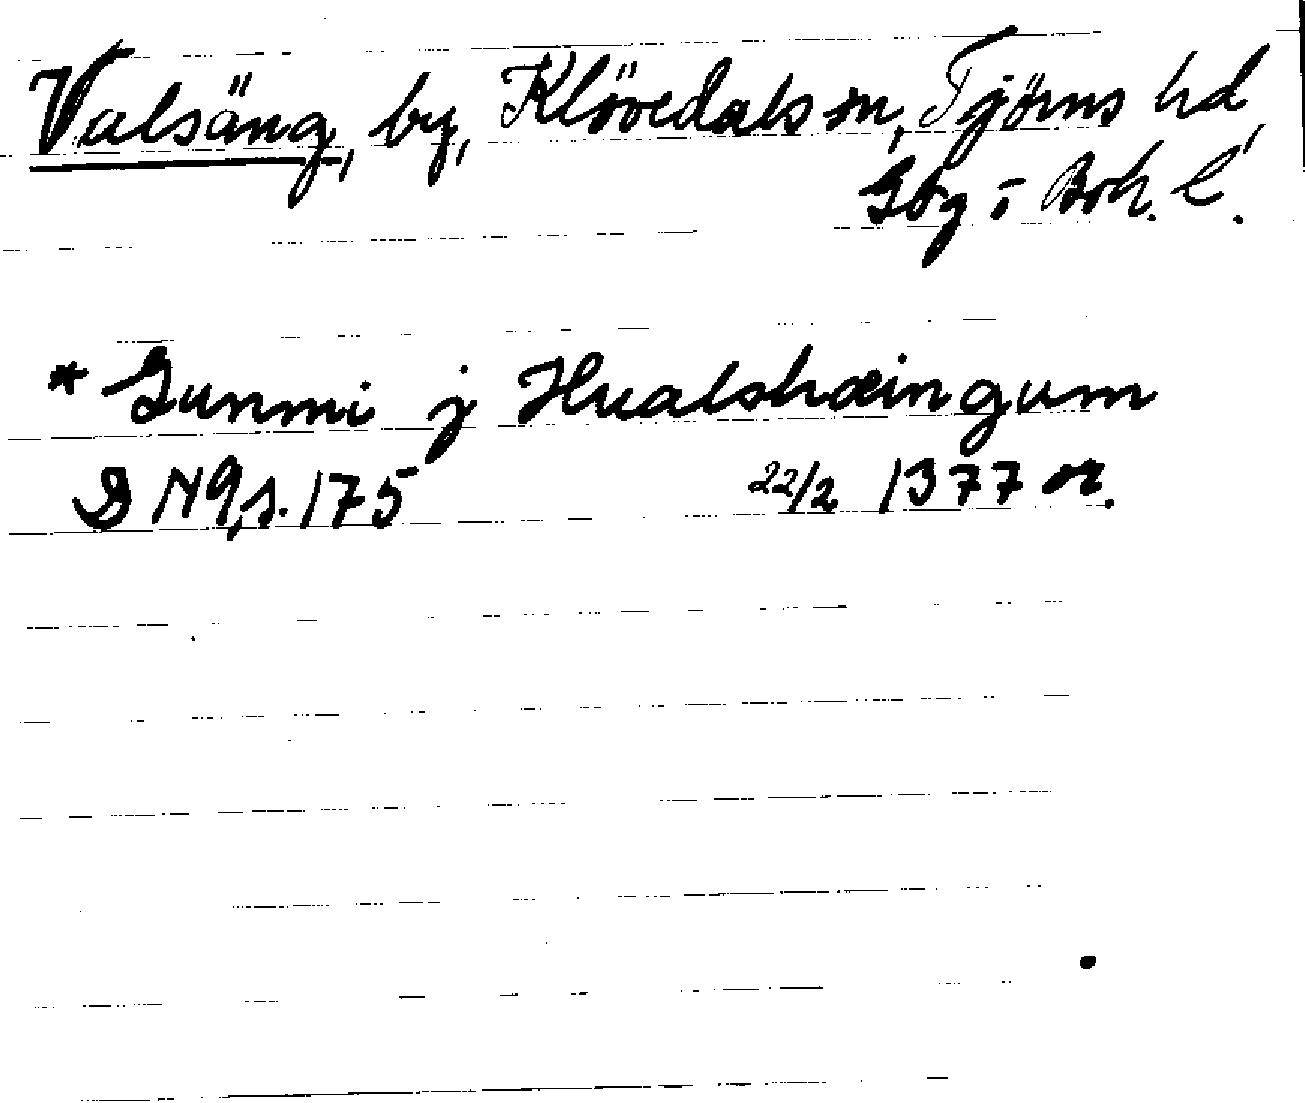 Valsäng, by, Klövedals sn, Tjörns hd,
Gbg o Boh. l.
* Gunmi j Hualshæingum
DN 9, s. 175 22/2 1377 or.